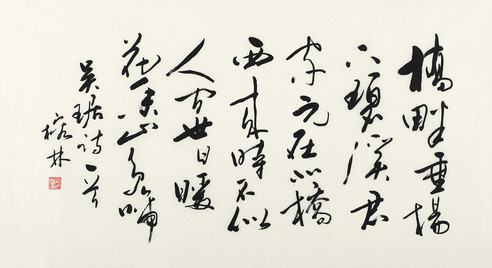 橋畔垂楊
下碧溪君
家元在北橋
西来時不似
人间世日暖
花香山鸟啼
吴琚诗一首
林